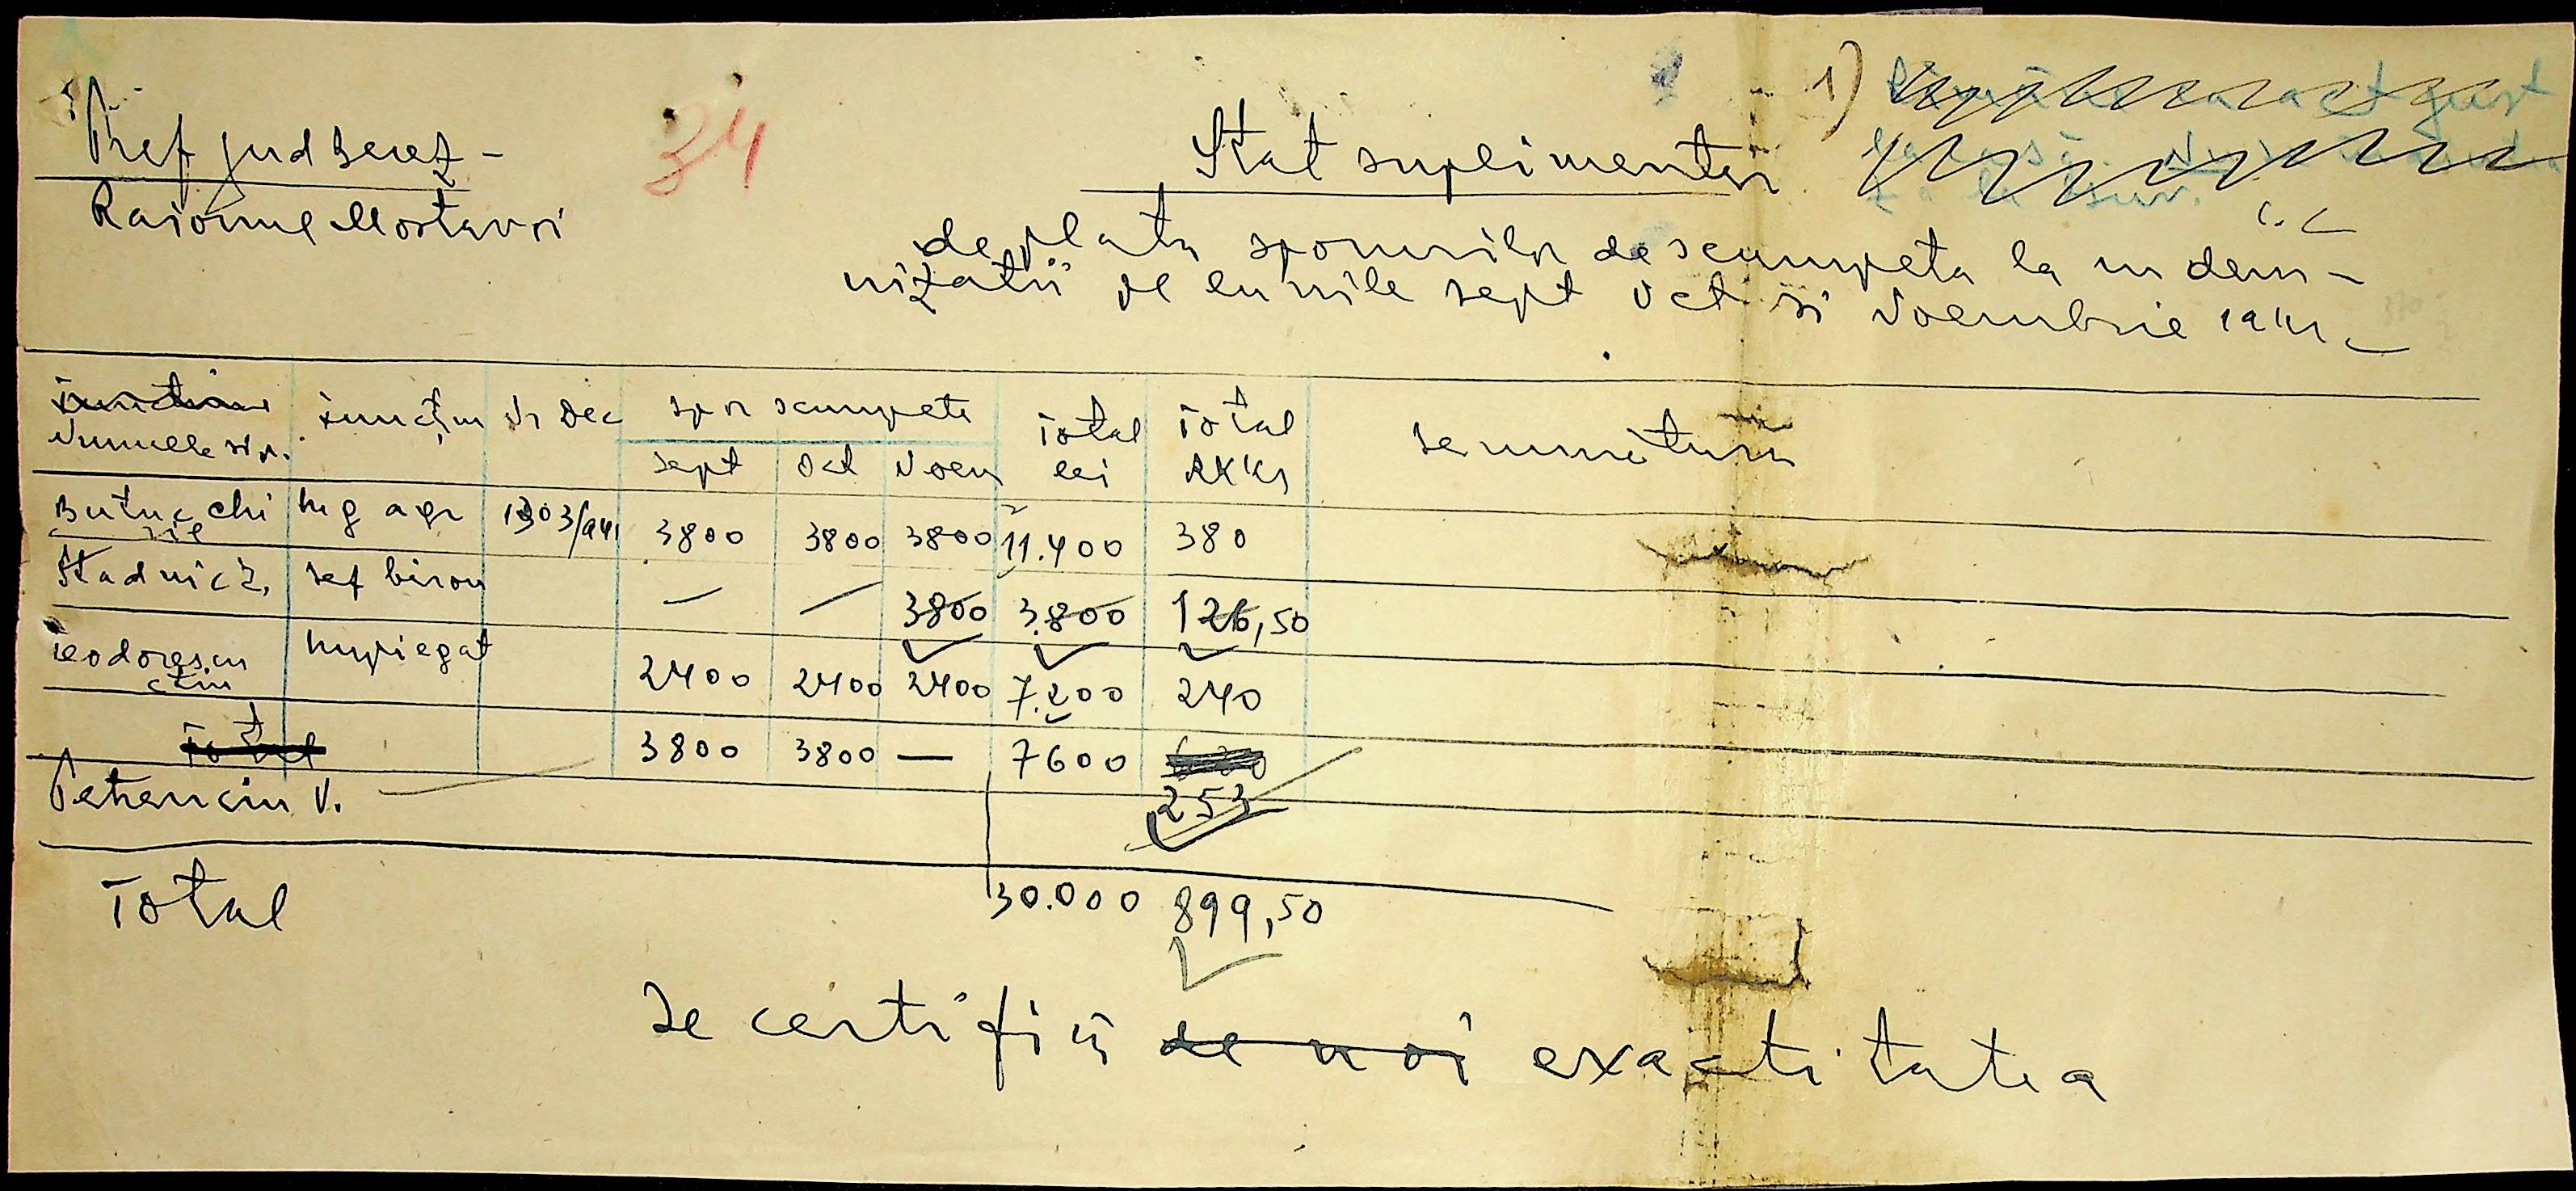 Pref jud Berez -
Raionul Mostovoi
34
1)
Stat suplimentar
de plata sporurilor de scumpete la indem-
nizatii pe lunile sept Oct si Noembrie 1941
functiunea
Numele si pr.
functiun
Nr Dec
spor scumpete
Total lei
Total RKKs
semnatura
sept Oct Noem
Butnec chiril Ing agr 1303/941 3800 3800 3800 11.400 380
Stadnic Z. sef birou — — 3800 3.800 126,50
Teodorescu Ctin Impiegat 2400 2400 2400 7.200 240
Total 3800 3800 — 7600
Petrenciu V. — 253
Total 30.000 899,50
Se certifică de noi exactitatea